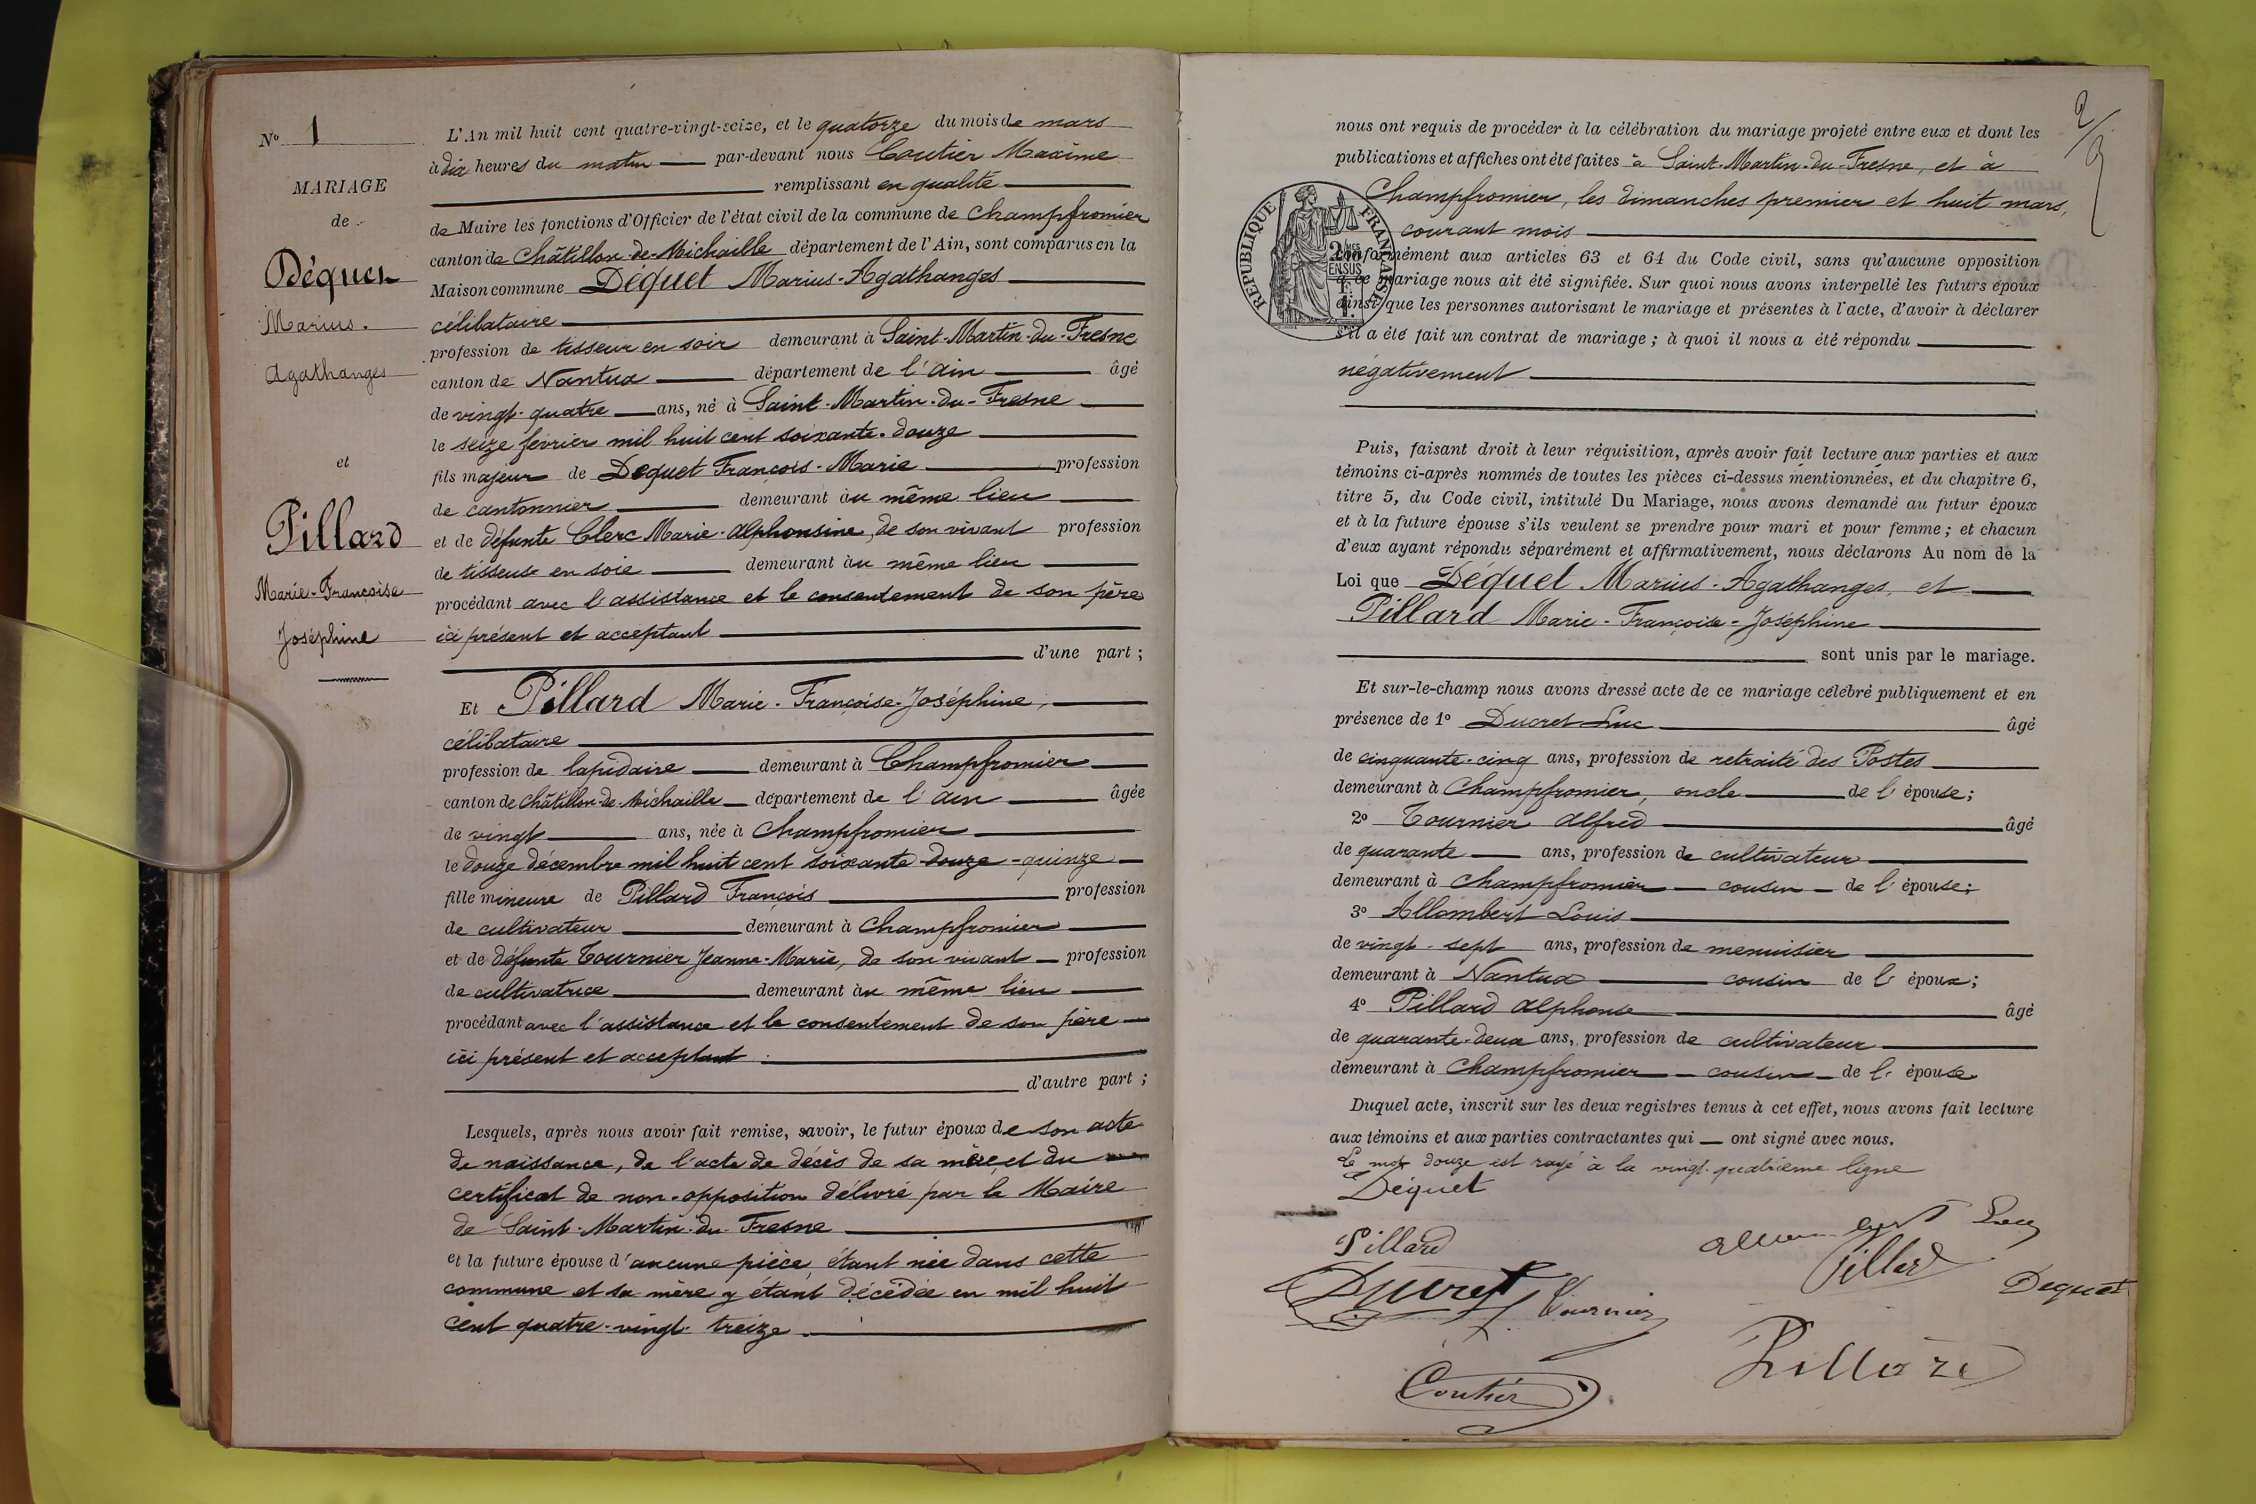 N° 1
MARIAGE
de
Déquet
Marius.
Agathanges
et
Pillard
Marie-Françoise
Joséphine
L'An mil huit cent quatre-vingt-seize, et le quatorze du mois de mars
à dix heures du matin par-devant nous Coutier Maxime
remplissant en qualité
de Maire les fonctions d'Officier de l'état civil de la commune de Champfromier
canton de Châtillon-de-Michaille département de l'Ain, sont comparus en la
Maison commune Déquet Marius-Agathanges
célibataire
profession de tisseur en soie demeurant à Saint-Martin-du-Fresne
canton de Nantua département de l'ain âgé
de vingt-quatre ans, né à Saint-Martin-du-Fresne
le seize février mil huit cent soixante-douze
fils majeur de Dequet François-Marie profession
de cantonnier demeurant au même lieu
et de défunte Clerc Marie-Alphonsine, de son vivant profession
de tisseuse en soie demeurant au même lieu
procédant avec l'assistance et le consentement de son père
ici présent et acceptant
d'une part ;
Et Pillard Marie-Françoise-Joséphine,
célibataire
profession de lapidaire demeurant à Champfromier
canton de Châtillon-de-Michaille département de l'ain âgée
de vingt ans, née à Champfromier
le douze décembre mil huit cent soixante douze - quinze
fille mineure de Pillard François profession
de cultivateur demeurant à Champfromier
et de défunte Tournier Jeanne-Marie, de son vivant profession
de cultivatrice demeurant au même lieu
procédant avec l'assistance et le consentement de son père
ici présent et acceptant
d'autre part ;
Lesquels, après nous avoir fait remise, savoir, le futur époux de son acte
de naissance, de l'acte de décès de sa mère et du
certificat de non-opposition délivré par le Maire
de Saint-Martin-du-Fresne
et la future épouse d'aucune pièce, étant née dans cette
commune et sa mère y étant décédée en mil huit
cent quatre-vingt-treize.
2/
nous ont requis de procéder à la célébration du mariage projeté entre eux et dont les
publications et affiches ont été faites à Saint-Martin-du-Fresne, et à
Champfromier, les dimanches premier et huit mars,
courant mois
RÉPUBLIQUE FRANÇAISE
conformément aux articles 63 et 64 du Code civil, sans qu'aucune opposition
à ce mariage nous ait été signifiée. Sur quoi nous avons interpellé les futurs époux
ainsi que les personnes autorisant le mariage et présentes à l'acte, d'avoir à déclarer
s'il a été fait un contrat de mariage ; à quoi il nous a été répondu
négativement
Puis, faisant droit à leur réquisition, après avoir fait lecture aux parties et aux
témoins ci-après nommés de toutes les pièces ci-dessus mentionnées, et du chapitre 6,
titre 5, du Code civil, intitulé Du Mariage, nous avons demandé au futur époux
et à la future épouse s'ils veulent se prendre pour mari et pour femme ; et chacun
d'eux ayant répondu séparément et affirmativement, nous déclarons Au nom de la
Loi que Déquet Marius-Agathanges, et
Pillard Marie-Françoise-Joséphine
sont unis par le mariage.
Et sur-le-champ nous avons dressé acte de ce mariage célébré publiquement et en
présence de 1° Ducret Luc âgé
de cinquante-cinq ans, profession de retraité des Postes
demeurant à Champfromier, oncle de l'épouse ;
2° Tournier Alfred âgé
de quarante ans, profession de cultivateur
demeurant à Champfromier cousin de l'épouse ;
3° Allombert Louis
de vingt-sept ans, profession de menuisier
demeurant à Nantua cousin de l'époux ;
4° Pillard Alphonse âgé
de quarante-deux ans, profession de cultivateur
demeurant à Champfromier cousin de l'épouse
Duquel acte, inscrit sur les deux registres tenus à cet effet, nous avons fait lecture
aux témoins et aux parties contractantes qui ont signé avec nous.
Le mot douze est rayé à la vingt-quatrième ligne
Déquet
Pillard
Pillard
Dequet
Ducret
Tournier
Pillard
Coutier